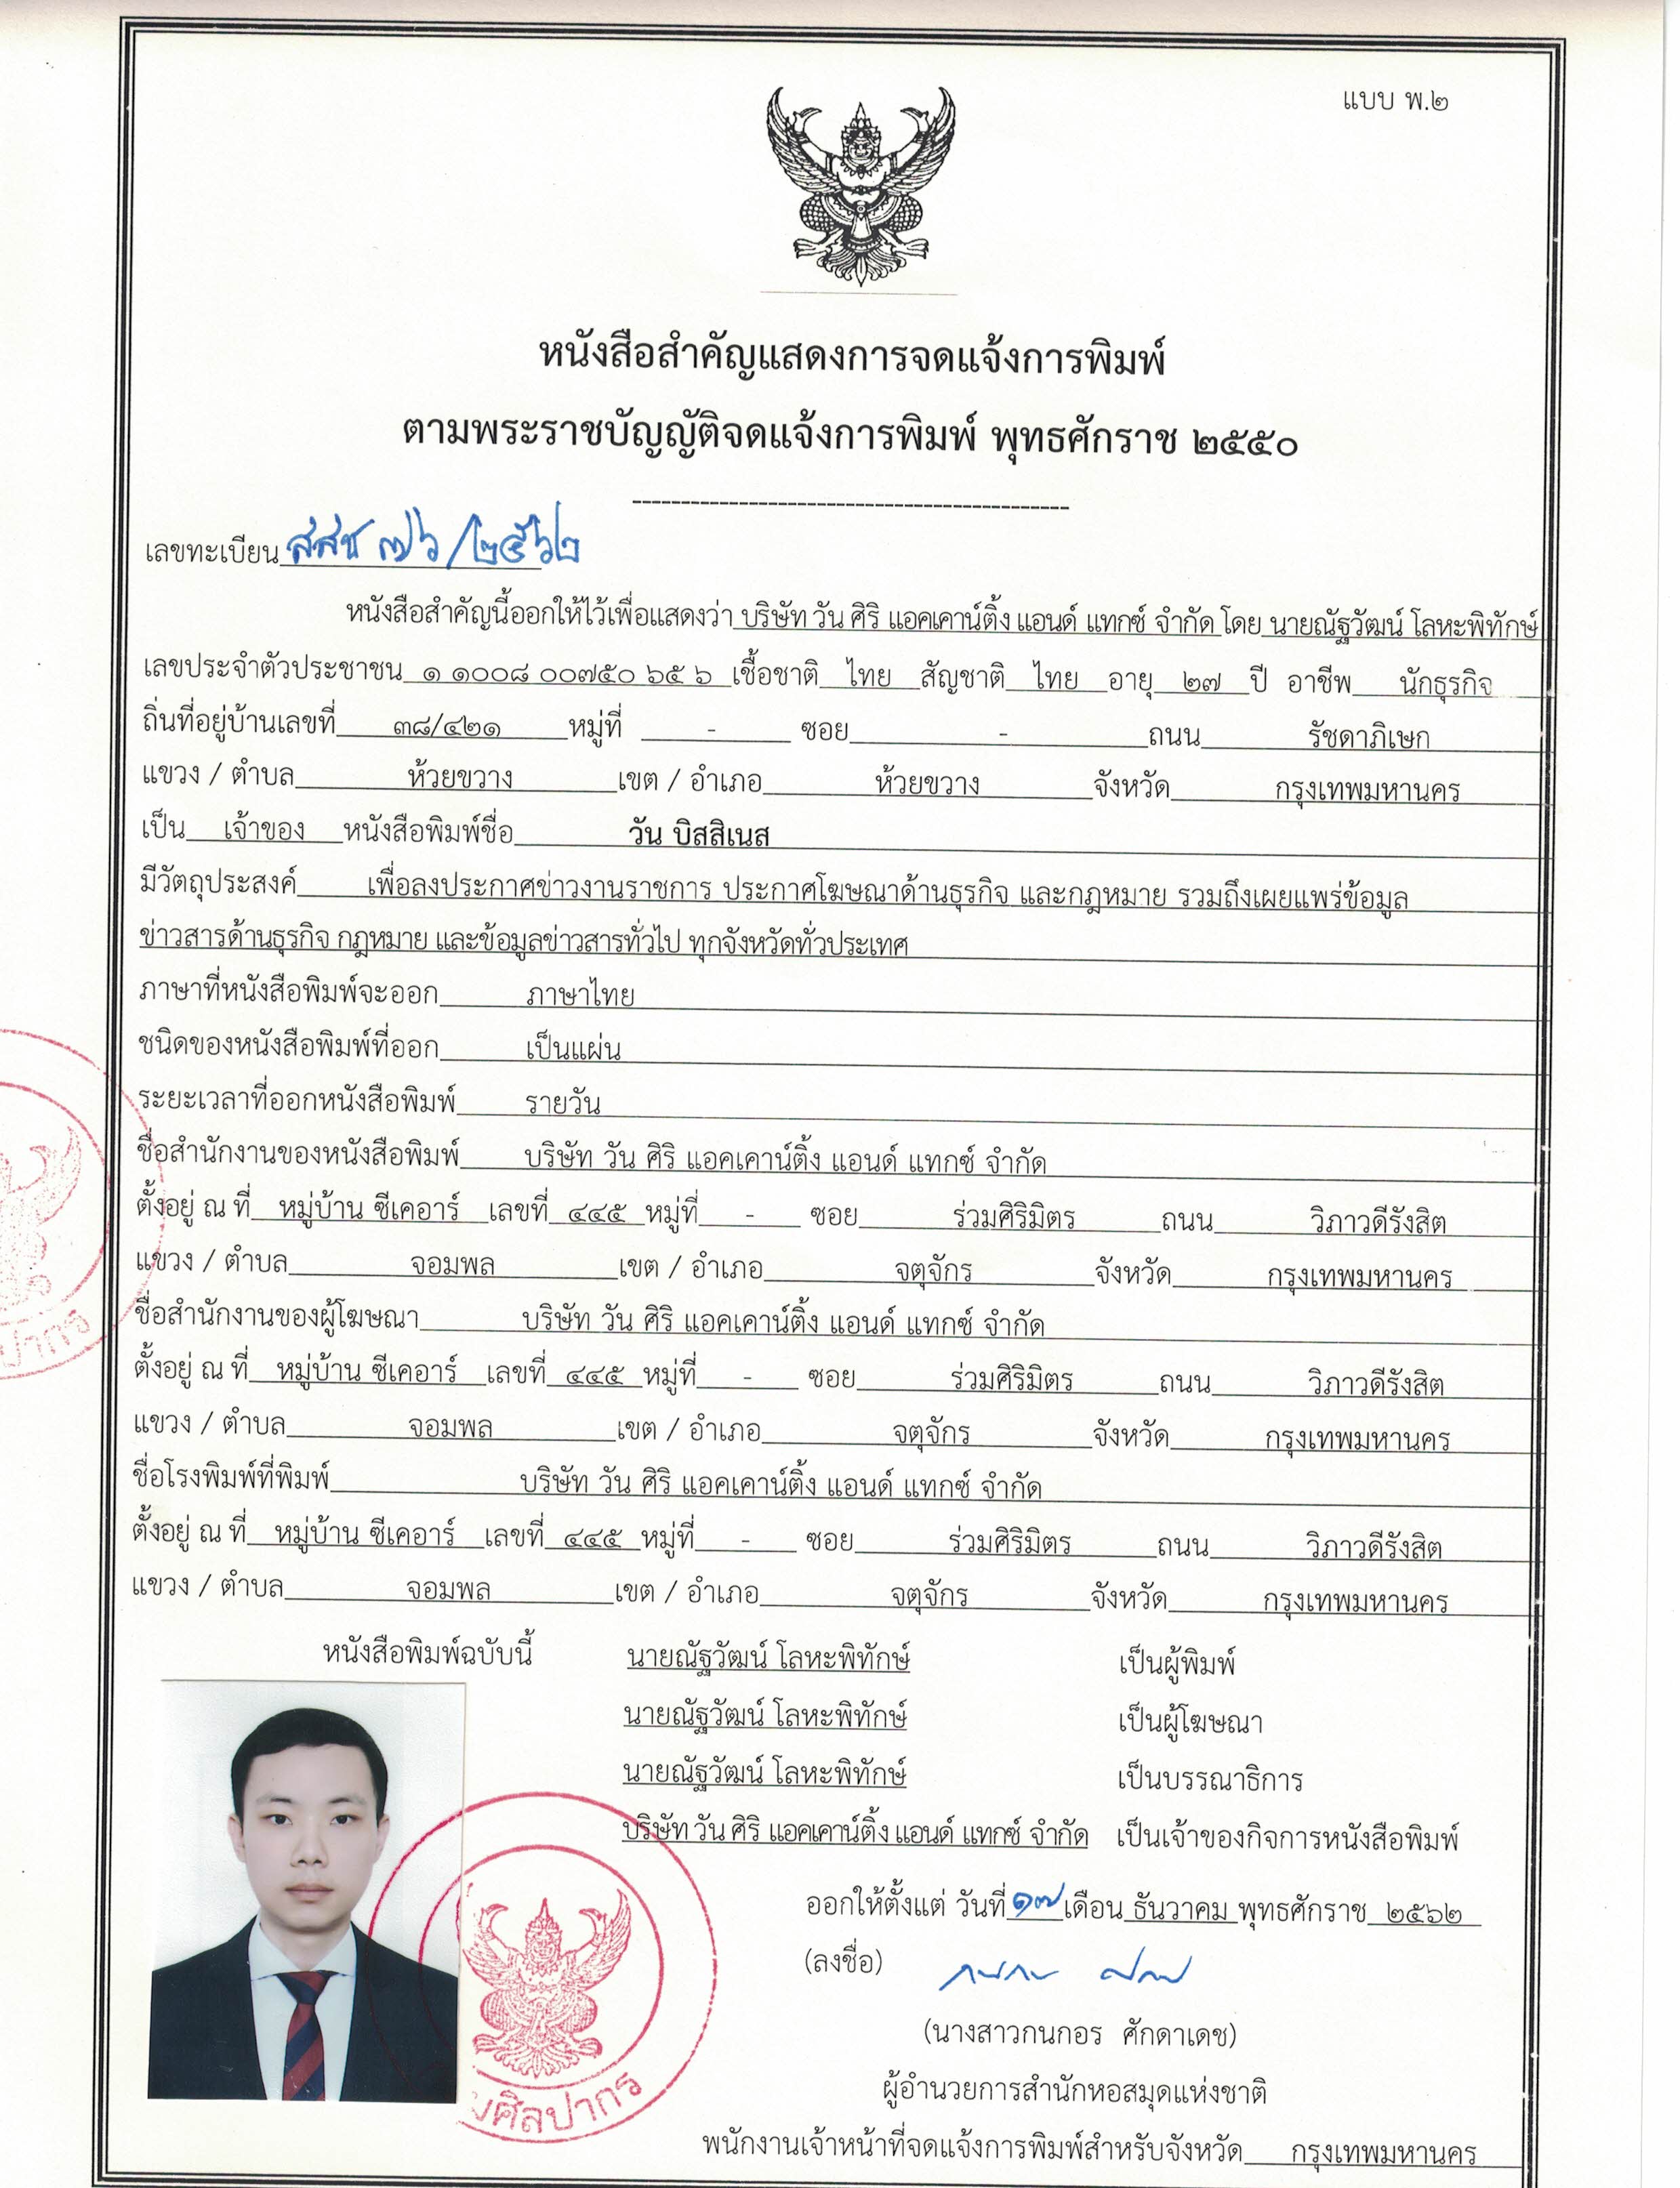 แบบ พ.๒
หนังสือสำคัญแสดงการจดแจ้งการพิมพ์
ตามพระราชบัญญัติจดแจ้งการพิมพ์ พุทธศักราช ๒๕๕๐
เลขทะเบียน สสช ๗๖/๒๕๖๒
หนังสือสำคัญนี้ออกให้ไว้เพื่อแสดงว่า บริษัท วัน ศิริ แอคเคาน์ติ้ง แอนด์ แทกซ์ จำกัด โดย นายณัฐวัฒน์ โลหะพิทักษ์
เลขประจำตัวประชาชน ๑ ๑๐๐๘ ๐๐๗๕๐ ๖๕ ๖ เชื้อชาติ ไทย สัญชาติ ไทย อายุ ๒๗ ปี อาชีพ นักธุรกิจ
ถิ่นที่อยู่บ้านเลขที่ ๓๘/๔๒๑ หมู่ที่ - ซอย - ถนน รัชดาภิเษก
แขวง / ตำบล ห้วยขวาง เขต / อำเภอ ห้วยขวาง จังหวัด กรุงเทพมหานคร
เป็น เจ้าของ หนังสือพิมพ์ชื่อ วัน บิสสิเนส
มีวัตถุประสงค์ เพื่อลงประกาศข่าวงานราชการ ประกาศโฆษณาด้านธุรกิจ และกฎหมาย รวมถึงเผยแพร่ข้อมูล
ข่าวสารด้านธุรกิจ กฎหมาย และข้อมูลข่าวสารทั่วไป ทุกจังหวัดทั่วประเทศ
ภาษาที่หนังสือพิมพ์จะออก ภาษาไทย
ชนิดของหนังสือพิมพ์ที่ออก เป็นแผ่น
ระยะเวลาที่ออกหนังสือพิมพ์ รายวัน
ชื่อสำนักงานของหนังสือพิมพ์ บริษัท วัน ศิริ แอคเคาน์ติ้ง แอนด์ แทกซ์ จำกัด
ตั้งอยู่ ณ ที่ หมู่บ้าน ซีเคอาร์ เลขที่ ๔๔๕ หมู่ที่ - ซอย ร่วมศิริมิตร ถนน วิภาวดีรังสิต
แขวง / ตำบล จอมพล เขต / อำเภอ จตุจักร จังหวัด กรุงเทพมหานคร
ชื่อสำนักงานของผู้โฆษณา บริษัท วัน ศิริ แอคเคาน์ติ้ง แอนด์ แทกซ์ จำกัด
ตั้งอยู่ ณ ที่ หมู่บ้าน ซีเคอาร์ เลขที่ ๔๔๕ หมู่ที่ - ซอย ร่วมศิริมิตร ถนน วิภาวดีรังสิต
แขวง / ตำบล จอมพล เขต / อำเภอ จตุจักร จังหวัด กรุงเทพมหานคร
ชื่อโรงพิมพ์ที่พิมพ์ บริษัท วัน ศิริ แอคเคาน์ติ้ง แอนด์ แทกซ์ จำกัด
ตั้งอยู่ ณ ที่ หมู่บ้าน ซีเคอาร์ เลขที่ ๔๔๕ หมู่ที่ - ซอย ร่วมศิริมิตร ถนน วิภาวดีรังสิต
แขวง / ตำบล จอมพล เขต / อำเภอ จตุจักร จังหวัด กรุงเทพมหานคร
หนังสือพิมพ์ฉบับนี้ นายณัฐวัฒน์ โลหะพิทักษ์ เป็นผู้พิมพ์
นายณัฐวัฒน์ โลหะพิทักษ์ เป็นผู้โฆษณา
นายณัฐวัฒน์ โลหะพิทักษ์ เป็นบรรณาธิการ
บริษัท วัน ศิริ แอคเคาน์ติ้ง แอนด์ แทกซ์ จำกัด เป็นเจ้าของกิจการหนังสือพิมพ์
ออกให้ตั้งแต่ วันที่ ๑๗ เดือน ธันวาคม พุทธศักราช ๒๕๖๒
(ลงชื่อ)
(นางสาวกนกอร ศักดาเดช)
ผู้อำนวยการสำนักหอสมุดแห่งชาติ
พนักงานเจ้าหน้าที่จดแจ้งการพิมพ์สำหรับจังหวัด กรุงเทพมหานคร